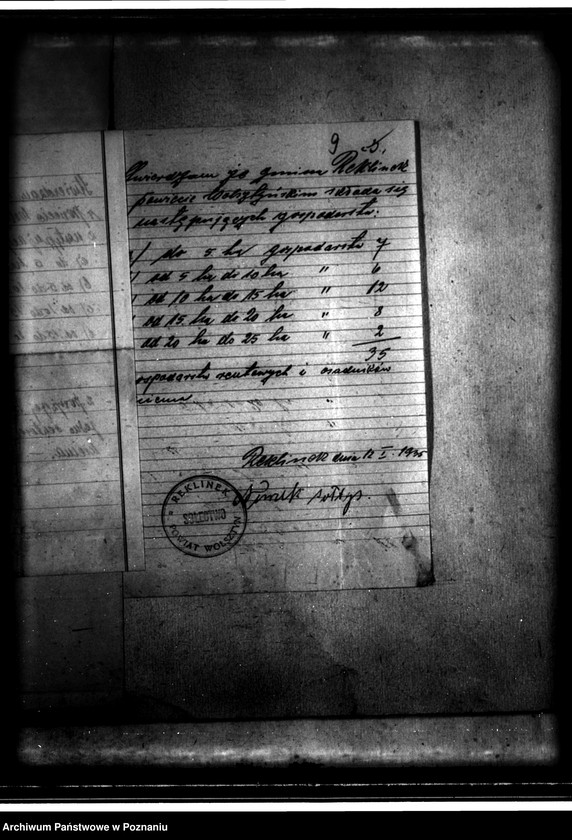 9 5.
Stwierdzam że gmina Reklinek
powiecie Wolsztyńskim składa się
następujących gospodarstw:
/ do 5 ha gospodarstw 7
/ od 5 ha do 10 ha " 6
/ od 10 ha do 15 ha " 12
/ od 15 ha do 20 ha " 8
od 20 ha do 25 ha " 2
35
ospodarstw rentowych i osadników
niema "
Reklinek dnia 12 I 1935
sołtys.
REKLINEK
SOŁECTWO
POWIAT WOLSZTYN
Archiwum Państwowe w Poznaniu